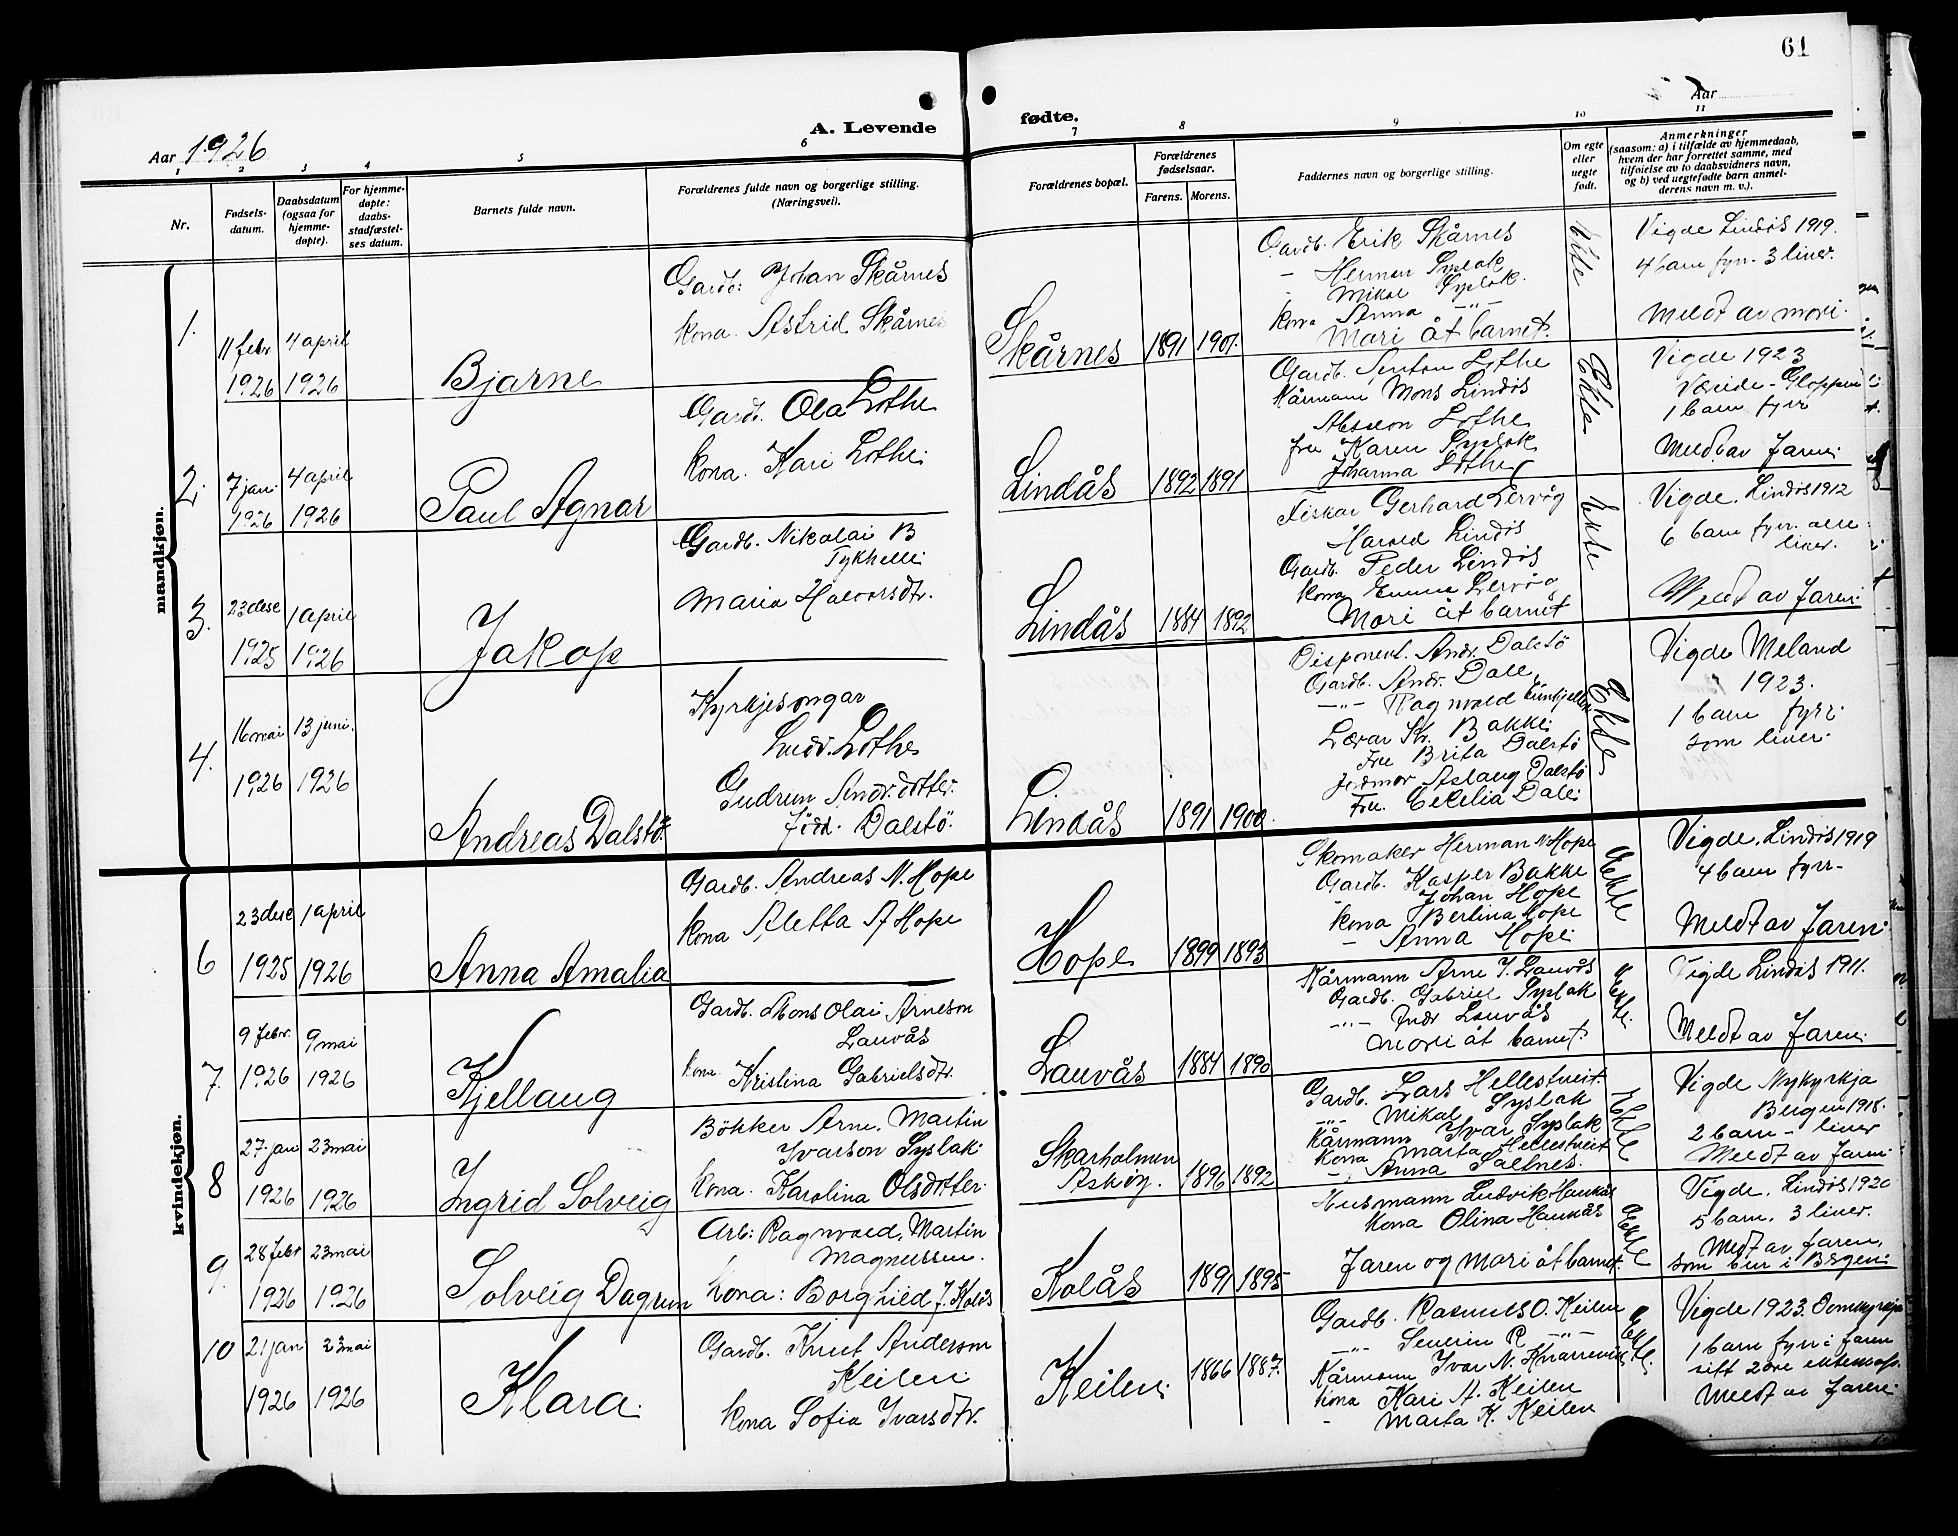 61
Aar 1926
A. Levende
fødte.
Aar
1 2 3 4 5 6 7 8 9 10 11
Nr.
Fødsels-
datum.
Daabsdatum
(ogsaa for
hjemme-
døpte).
For hjemme-
døpte:
daabs-
stadfæstel-
ses datum.
Barnets fulde navn.
Forældrenes fulde navn og borgerlige stilling.
(Næringsvei).
Forældrenes bopæl.
Forældrenes
fødselsaar.
Farens. Morens.
Faddernes navn og borgerlige stilling.
Om egte
eller
uegte
født.
Anmerkninger
(saasom: a) i tilfælde av hjemmedaab,
hvem der har forrettet samme, med
tilføielse av to daabsvidners navn,
og b) ved uegtefødte barn anmel-
derens navn m. v.).
mandkjøn.
1.
11 febr
1926
4 april
1926
Bjarne
Gardb: Johan Skårnes
kona. Astrid Skårnes
Skårnes
1891 1901.
Gardb. Erik Skårnes
- Herman Syslak
- Mikal Syslak.
kona Anna -"-
Mori åt barnet.
Ekte
Vigde Lindås 1919.
4 barn fyrr. 3 liver.
Meldt av mori.
2.
7 jan.
1926
4 april
1926
Paul Agnar
Gardb. Ola Lothe
kona. Kari Lothe.
Lindås
1892 1891
Gardb. Anton Lothe
Kårmann Mons Lindås
Absalon Lothe
fru Karen Syslak
Johanna Lothe
Ekte
Vigde 1923
Væreide - Gloppen
1 barn fyrr
Meldt av faren.
3.
23 dese
1925
1 april
1926
Jakop
Gardb. Nikolai B
Fykhelle
Maria Halvorsdtr.
Lindås
1884 1892
Fiskar Gerhard Lervåg
Harald Lindås
Gardb. Peder Lindås
kona Emma Lervåg
Mori åt barnet
Ekte
Vigde. Lindås 1912
6 barn fyrr. alle
liver.
Meldt av faren.
4.
16 mai
1926
13 juni.
1926
Andreas Dalstö.
Kyrkjesongar
Ludv. Lothe
Gudrun Andr. dotter.
född. Dalstö.
Lindås
1891 1900.
Disponent. Andr. Dalstö
Gardb. Andr. Dale,
-"- Ragnvald
Lærar Bakke.
Fru Brita Dalstö
Jordmor Aslaug Dalstö
Fru. Cecilia Dale.
Ekte
Vigde Meland
1923.
1 barn fyrr.
som liver.
kvindekjøn.
6
23 dese
1925
1 april
1926
Anna Amalia
Gardb. Andreas N. Hope
kona Aletta A Hope
Hope
1899 1893
Skomaker Herman N Hope
Gardb. Kasper Bakke
Johan Hope
kona Berlina Hope
- Anna Hope.
Ekte
Vigde. Lindås 1919
4 barn fyrr-
Meldt av faren.
7.
9 febr.
1926
9 mai
1926
Kjellaug
Gardb. Mons Olai Arneson
Lauvås
kona. Kristina Gabrielsdtr.
Lauvås
1884 1890
Kårmann Arne J. Lauvås
Gardb. Gabriel Syslak
-"- Andr Lauvås
mori åt barnet.
Ekte.
Vigde Lindås 1911.
Meldt av faren.
8
27 jan
1926
23 mai
1926
Ingrid Solveig
Bökker Arne. Martin
Ivarson Syslak.
kona. Karolina Olsdotter.
Skarholmen
Askøy.
1896 1892
Gardb. Lars Hellestveit.
-"- Mikal Syslak
Kårmann Ivar Syslak
kona Marta Hellestveit
- Anna Saltnes.
Ekte
Vigde Nykyrkja
Bergen 1918.
2 barn - liver
Meldt av faren.
9.
28 febr
1926
23 mai
1926
Solveig Dagrun
Arb: Ragnvald. Martin
Magnussen.
kona: Borghild J. Kolås
Kolås
1891 1895
Husmann Ludvik Haukås
kona Olina Haukås
Faren og Mori åt barnet.
Ekte
Vigde. Lindås 1920
5 barn. 3 liver.
Meldt av faren,
som bur i Bergen.
10
21 jan
1926
23 mai
1926
Klara.
Gardb. Knut Anderson
Keilen
kona Sofia Ivarsdtr.
Keilen.
1866 1887.
Gardb. Rasmus O. Keilen
-"- Severin R -"-
Kårmann Ivar N. Knarrevik
kona Kari A. Keilen
- Marta K. Keilen
Ekte.
Vigde 1923. Domkyrkja
1 barn fyrr. faren
gift 2dre
Meldt av faren.